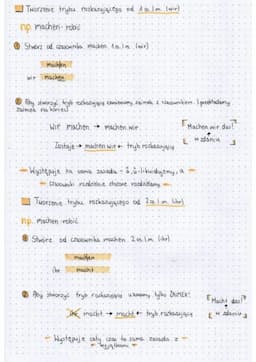 Tworzenie trybu rozkazującego od 1 os. l. m. (wir)
np. machen - robić
① Stwórz od czasownika machen 1 os. l. m. (wir)
machen
wir machen
② Aby stworzyć tryb rozkazujący zamieniamy zaimek z czasownikiem. (przekładamy
zaimek na koniec)
wir machen → machen wir
[Machen wir das!
w zdaniu]
Zostaje → machen wir ← tryb rozkazujący
Występuje ta sama zasada -
czasowniki rozdzielnie złożone rozdzielamy
Tworzenie trybu rozkazującego od 2 os. l. m. (ihr)
np. machen - robić
① Stwórz od czasownika machen 2 os. l. m. (ihr)
machen
ihr macht
② Aby stworzyć tryb rozkazujący usuwamy tylko ZAIMEK!
[Macht das!
w zdaniu]
ihr macht → macht ← tryb rozkazujący
Występuje cały czas ta sama zasada z